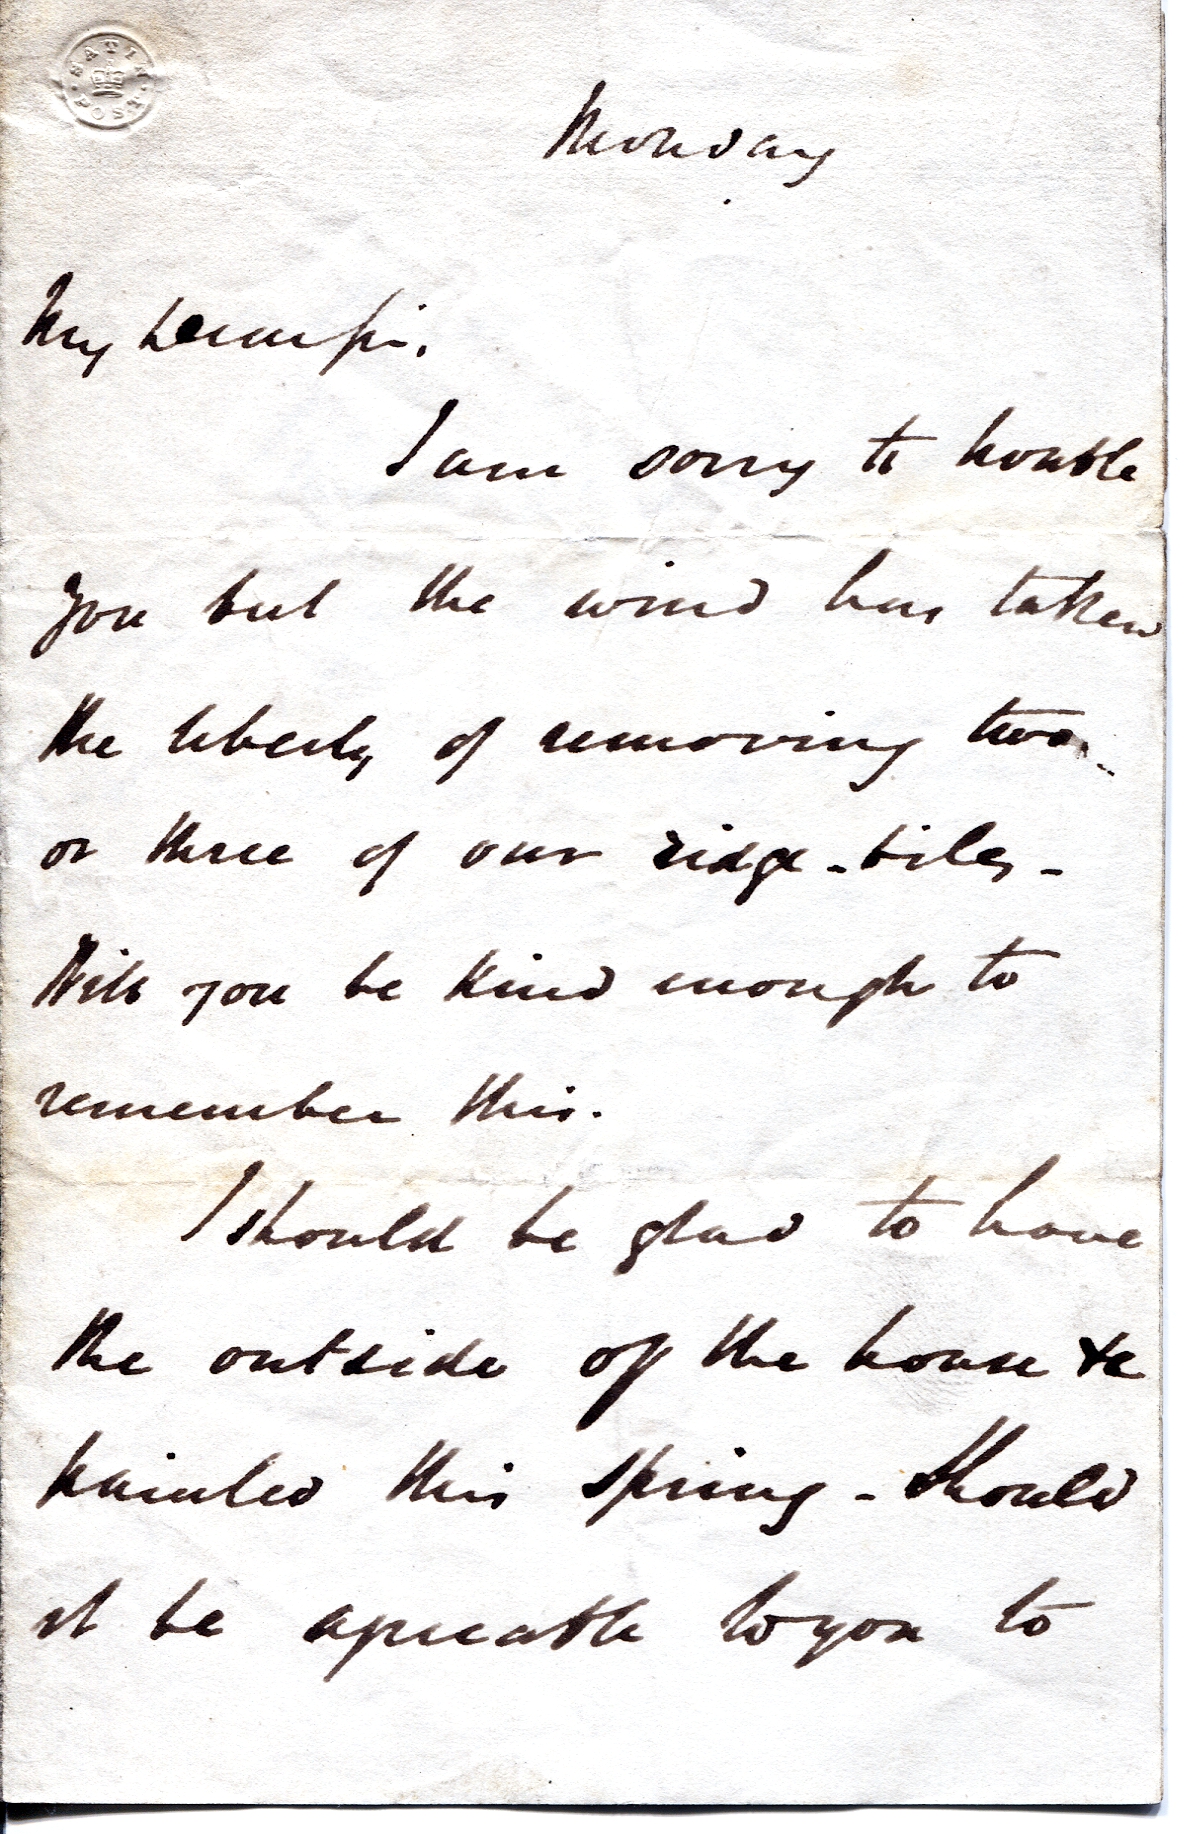 SATIN
POST
Monday
My dear Sir.
I am sorry to trouble
you but the wind has taken
the liberty of removing two
or three of our ridge-tiles -
Will you be kind enough to
remember this.
I should be glad to have
the outside of the house &c
painted this spring - Should
it be agreeable to you to